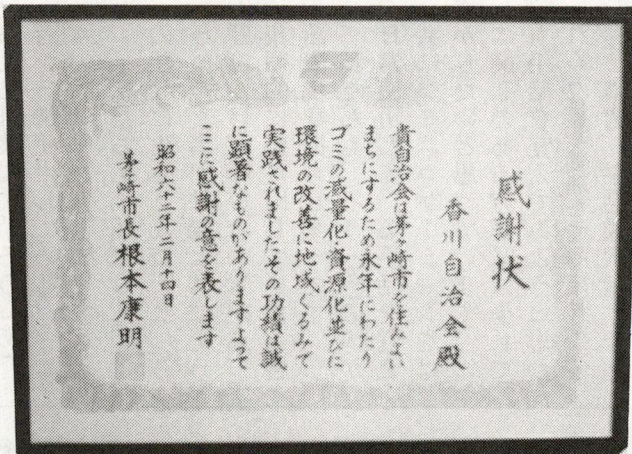 感謝状
香川自治会殿
貴自治会は茅ヶ崎市を住みよい
まちにするため永年にわたり
ゴミの減量化・資源化並びに
環境の改善に地域ぐるみで
実践されましたその功績は誠
に顕著なものがありますよって
ここに感謝の意を表します
昭和六十二年二月十四日
茅ヶ崎市長根本康明